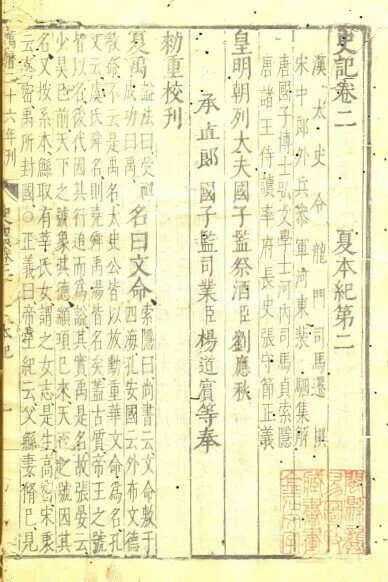 史記卷二 夏本紀第二
漢太史令龍門司馬遷撰
宋中郎外兵參軍河東裴駰集解
唐國子博士弘文學士河內司馬貞索隱
唐諸王侍讀率府長史張守節正義
皇明朝列大夫國子監祭酒臣劉應秋
承直郎國子監司業臣楊道賓等奉
勑重校刊
夏禹
謚法曰受禪
成功曰禹
名曰文命
索隱曰尚書云文命敷于
四海孔安國云外布文德
教命不云是禹名太史公皆以放勳重華文命為名孔
文云虞氏舜名則堯舜禹湯皆名矣蓋古質帝王之號
皆以名後代因其行追而為謚其實禹是名故張晏云
少昊已前天下之號象其德顓頊已來天下之號因其
名又按系本鯀取有莘氏女謂之女志是生高密宋衷
云高密禹所封國○正義曰帝王紀云父鯀妻脩己見
十六年刊
史記卷二
本紀